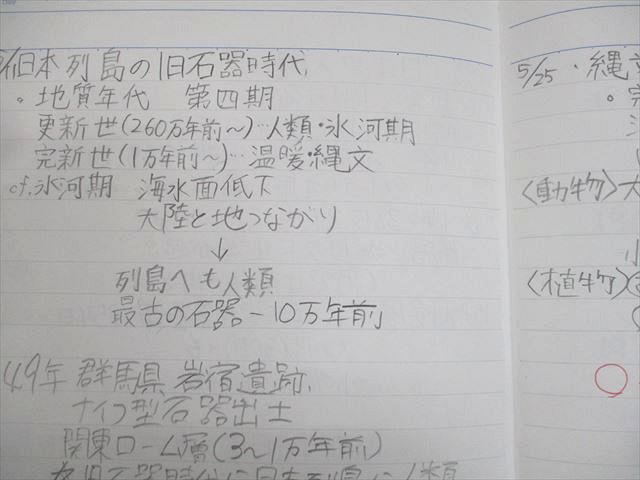 日本列島の旧石器時代
。地質年代 第四期
更新世(260万年前~)…人類・氷河期
完新世(1万年前~)…温暖・縄文
cf.氷河期 海水面低下
大陸と地つながり
↓
列島へも人類
最古の石器-10万年前
49年 群馬県 岩宿遺跡
ナイフ型石器出土
関東ローム層(3~1万年前)
旧石器時代に日本列島に人類
5/25・縄文
〈動物〉大
〈植物〉